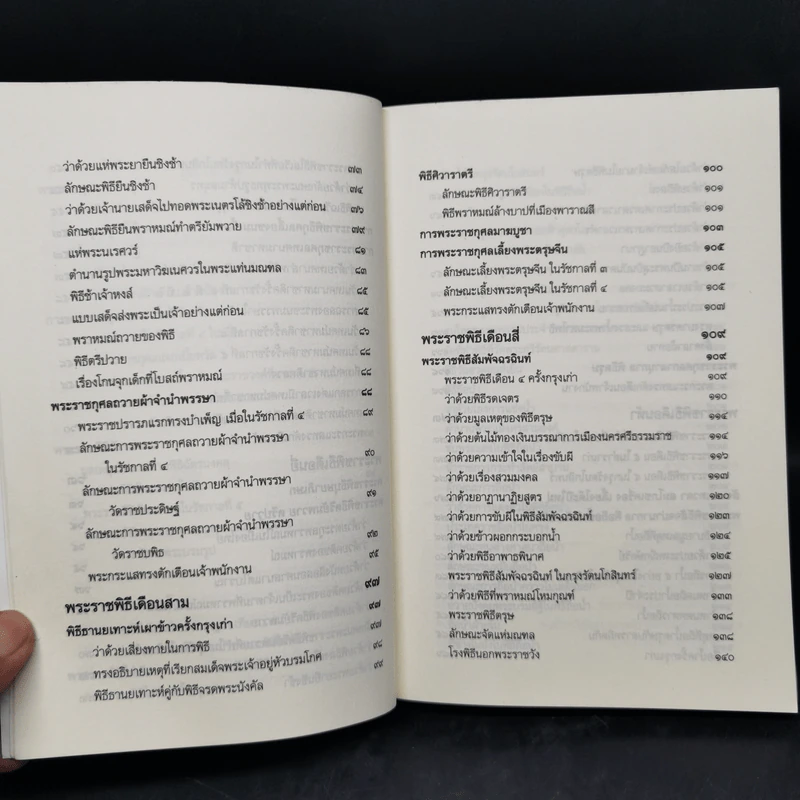 ว่าด้วยแห่พระยายืนชิงช้า ๗๓
ลักษณะพิธียืนชิงช้า ๗๔
ว่าด้วยเจ้านายเสด็จไปทอดพระเนตรโล้ชิงช้าอย่างแต่ก่อน ๗๖
ลักษณะพิธียืนพราหมณ์ทำตรียัมพวาย ๗๙
แห่พระนเรศวร์ ๘๑
ตำนานรูปพระมหาวิฆเนศวรในพระแท่นมณฑล ๘๓
พิธีช้าเจ้าหงส์ ๘๕
แบบเสด็จส่งพระเป็นเจ้าอย่างแต่ก่อน ๘๕
พราหมณ์ถวายของพิธี ๘๖
พิธีตรีปวาย ๘๘
เรื่องโกนจุกเด็กที่โบสถ์พราหมณ์ ๘๘
พระราชกุศลถวายผ้าจำนำพรรษา ๘๘
พระราชปรารภแรกทรงบำเพ็ญ เมื่อในรัชกาลที่ ๔ ๘๙
ลักษณะการพระราชกุศลถวายผ้าจำนำพรรษา
ในรัชกาลที่ ๔ ๙๐
ลักษณะการพระราชกุศลถวายผ้าจำนำพรรษา
วัดราชประดิษฐ์ ๙๑
ลักษณะการพระราชกุศลถวายผ้าจำนำพรรษา
วัดราชบพิธ ๙๒
พระกระแสทรงตักเตือนเจ้าพนักงาน ๙๕
พระราชพิธีเดือนสาม ๙๗
พิธีธานยเทาะห์เผาข้าวครั้งกรุงเก่า ๙๗
ว่าด้วยเสี่ยงทายในการพิธี ๙๗
ทรงอธิบายเหตุที่เรียกสมเด็จพระเจ้าอยู่หัวบรมโกศ ๙๘
พิธีธานยเทาะห์คู่กับพิธีจรดพระนังคัล ๙๙
พิธีศิวาราตรี ๑๐๐
ลักษณะพิธีศิวาราตรี ๑๐๑
พิธีพราหมณ์ล้างบาปที่เมืองพาราณสี ๑๐๑
การพระราชกุศลมาฆบูชา ๑๐๓
การพระราชกุศลเลี้ยงพระตรุษจีน ๑๐๕
ลักษณะเลี้ยงพระตรุษจีน ในรัชกาลที่ ๓ ๑๐๕
ลักษณะเลี้ยงพระตรุษจีน ในรัชกาลที่ ๔ ๑๐๕
พระกระแสทรงตักเตือนเจ้าพนักงาน ๑๐๗
พระราชพิธีเดือนสี่ ๑๐๙
พระราชพิธีสัมพัจฉรฉินท์ ๑๐๙
พระราชพิธีเดือน ๔ ครั้งกรุงเก่า ๑๐๙
ว่าด้วยพิธีรดเจตร ๑๑๐
ว่าด้วยมูลเหตุของพิธีตรุษ ๑๑๔
ว่าด้วยต้นไม้ทองเงินบรรณาการเมืองนครศรีธรรมราช ๑๑๔
ว่าด้วยความเข้าใจในเรื่องขับผี ๑๑๖
ว่าด้วยเรื่องสวมมงคล ๑๑๗
ว่าด้วยอาฏานาฏิยสูตร ๑๒๐
ว่าด้วยการขับผีในพิธีสัมพัจฉรฉินท์ ๑๒๓
ว่าด้วยข้าวผอกกระบอกน้ำ ๑๒๔
ว่าด้วยพิธีอาพาธพินาศ ๑๒๕
พระราชพิธีสัมพัจฉรฉินท์ ในกรุงรัตนโกสินทร์ ๑๒๗
ว่าด้วยพิธีที่พราหมณ์โหมกุณฑ์ ๑๓๓
พระราชพิธีตรุษ ๑๓๘
ลักษณะจัดแท่นมณฑล ๑๓๘
โรงพิธีนอกพระราชวัง ๑๔๐